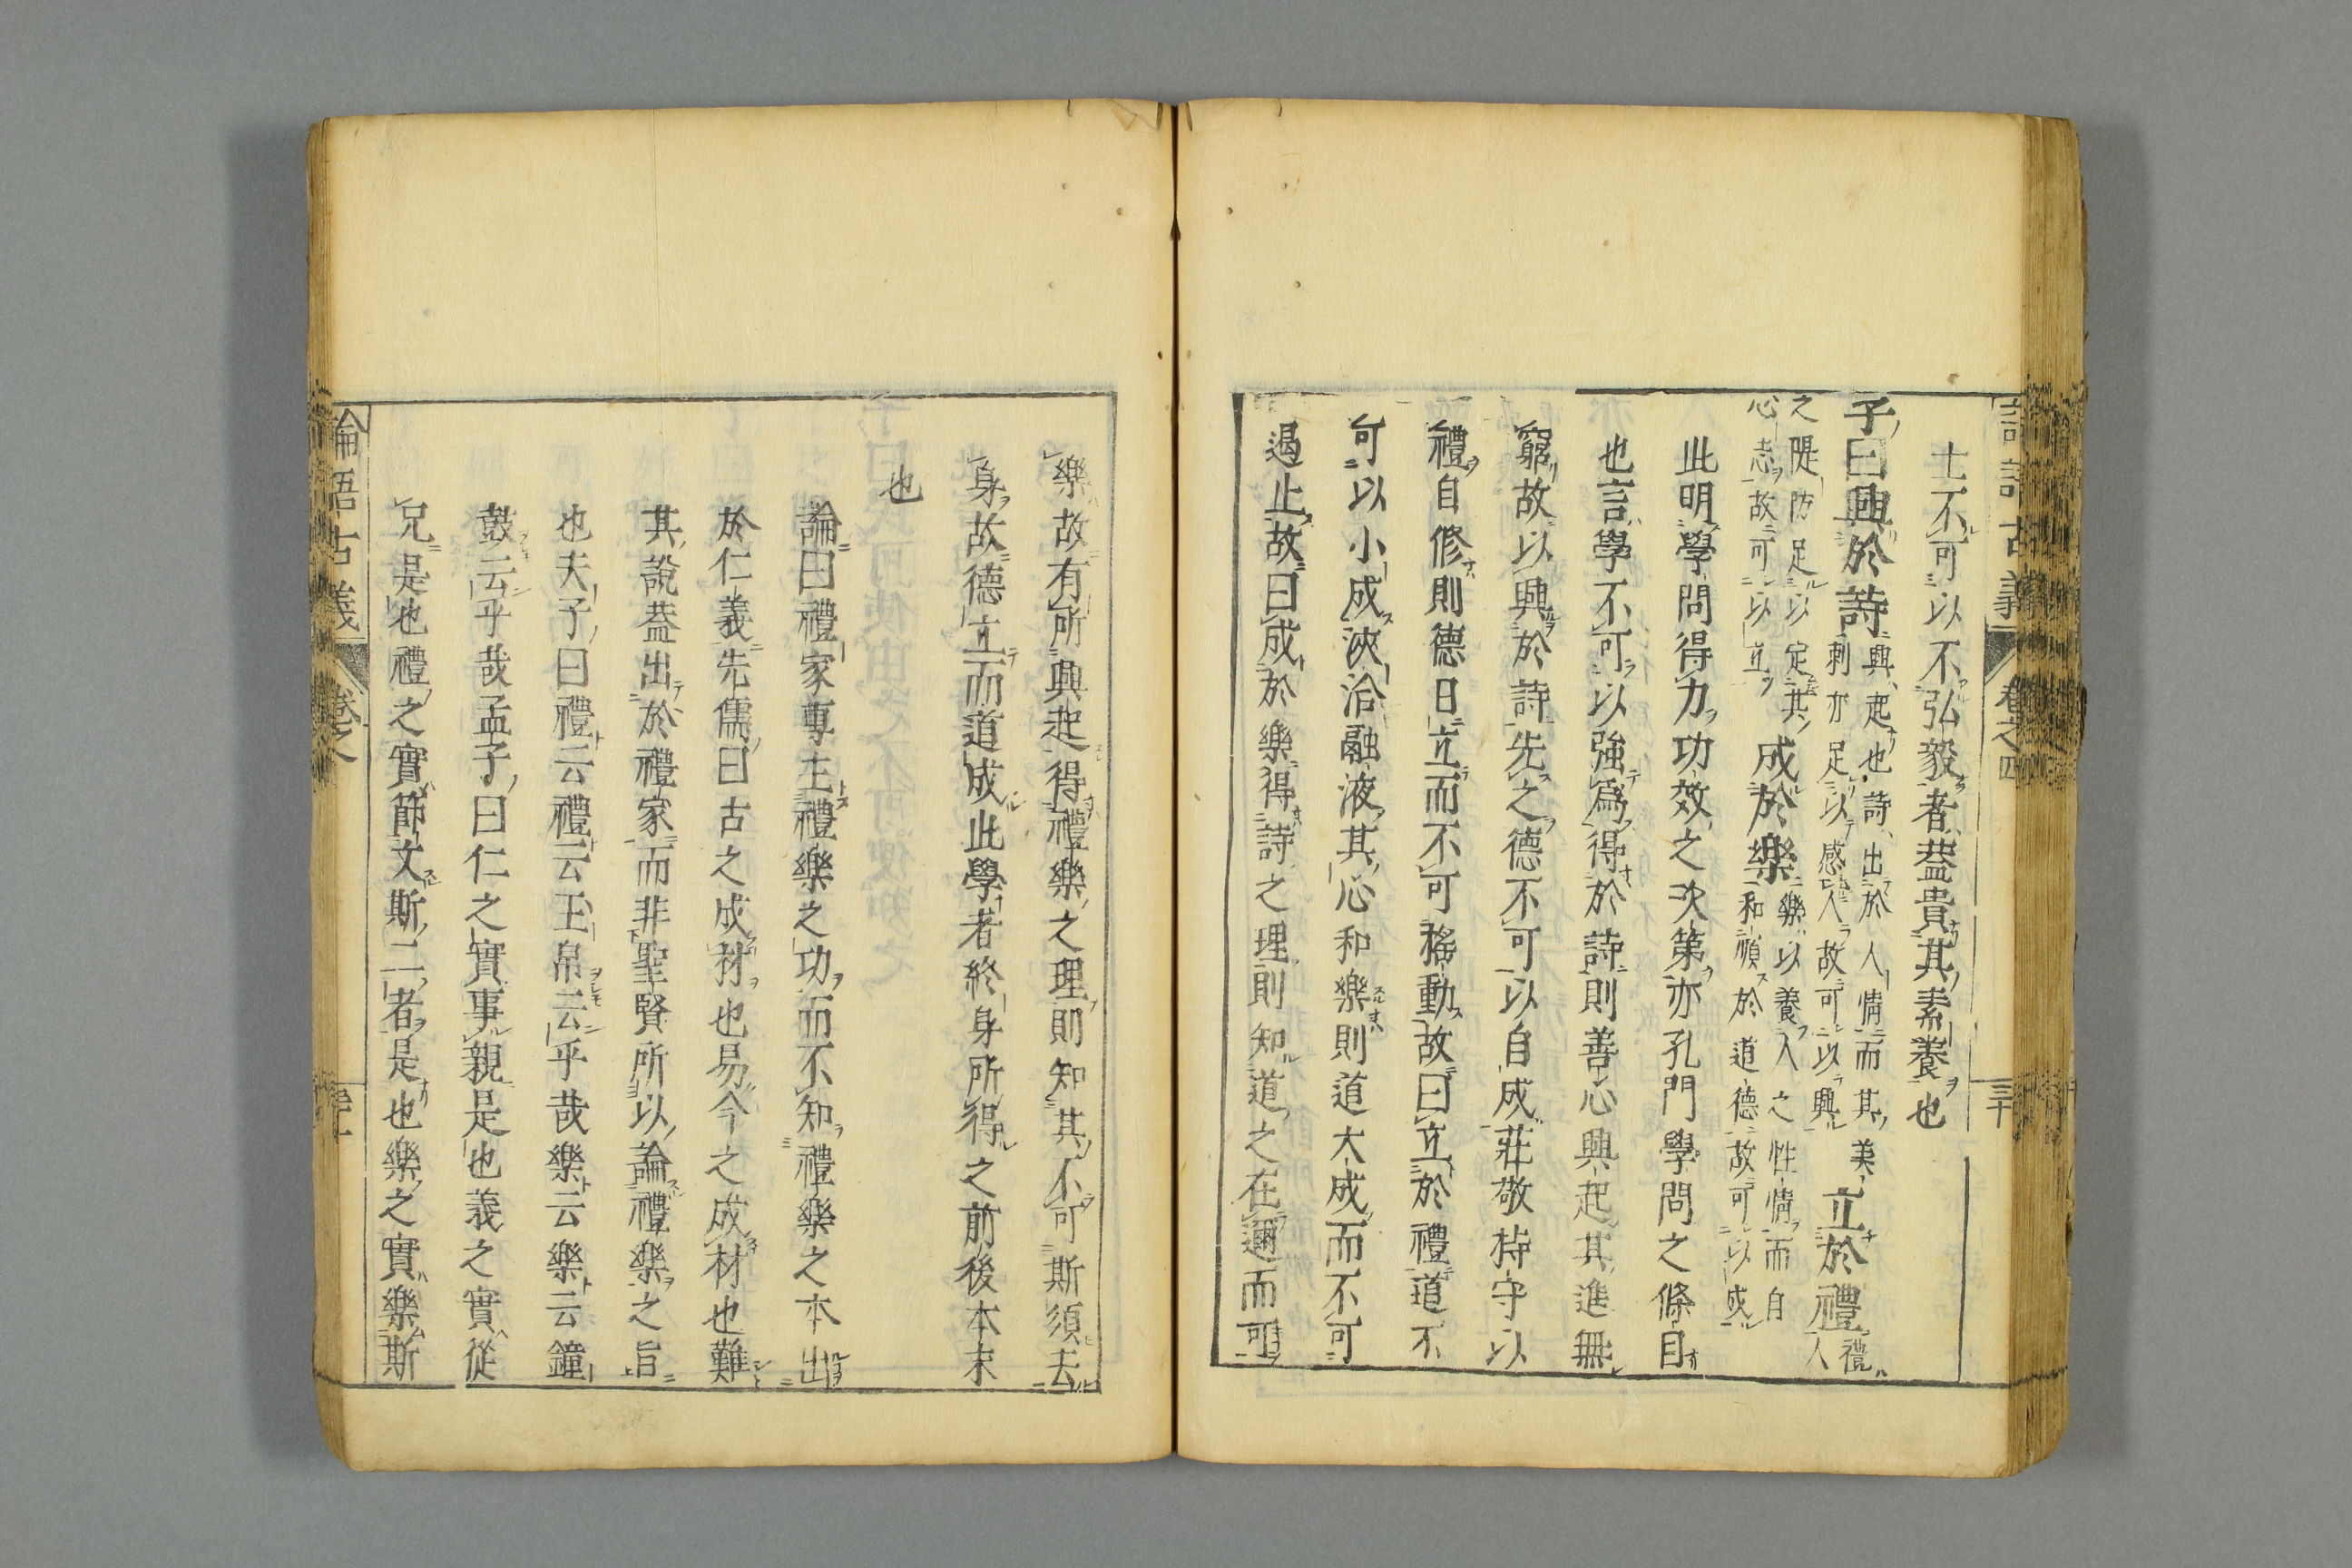 士不可以不弘毅者蓋貴其素養也
子曰興於詩興起也詩出於人情而其美刺亦足以感人故可以興立於禮禮人
之隄防足以定其心志故可以立成於樂樂以養人之性情而自和順於道德故可以成
此明學問得力功效之次第亦孔門學問之條目
也言學不可以強爲得於詩則善心興起其進無
窮故以興於詩先之德不可以自成莊敬持守以
禮自修則德日立而不可搖動故曰立於禮道不
可以小成浹洽融液其心和樂則道大成而不可
遏止故曰成於樂得詩之理則知道之在邇而可
樂故有所興起得禮樂之理則知其不可斯須去
身故德立而道成此學者終身所得之前後本末
也
論曰禮家專主禮樂之功而不知禮樂之本出
於仁義先儒曰古之成材也易今之成材也難
其說蓋出於禮家而非聖賢所以論禮樂之旨
也夫子曰禮云禮云玉帛云乎哉樂云樂云鐘
鼓云乎哉孟子曰仁之實事親是也義之實從
兄是也禮之實節文斯二者是也樂之實樂斯
論語古義
卷之四
三十